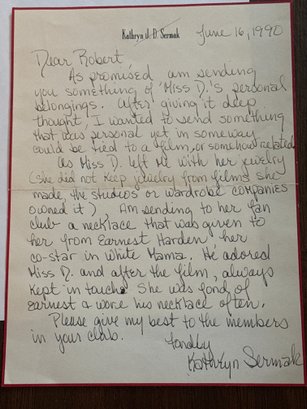 Kathryn J. D. Sermak
June 16, 1990
Dear Robert
As promised am sending
you something of 'Miss D.'s personal
belongings. After giving it deep
thought, I wanted to send something
that was personal yet in someway
could be tied to a film, or somehow related
as Miss D. left me with her jewelry
(she did not keep jewelry from films she
made, the studios or wardrobe companies
owned it) Am sending to her fan
club a necklace that was given to
her from Earnest Harden her
co-star in White Mama. He adored
Miss D. and after the film, always
kept in touch. She was fond of
Earnest & wore his necklace often.
Please give my best to the members
in your club.
Fondly
Kathryn Sermak